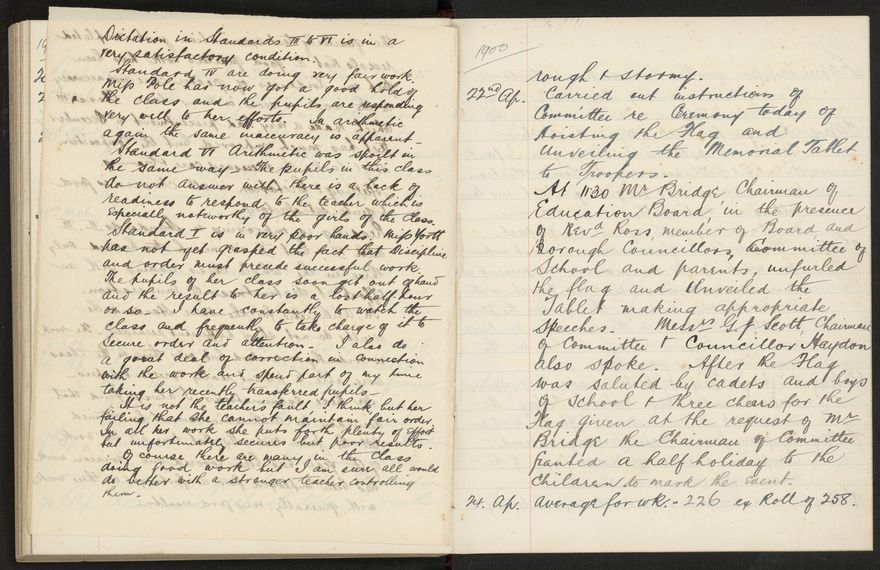 Dictation in Standards III to VI is in a
very satisfactory condition.
Standard IV are doing very fair work.
Miss Pole has now got a good hold of
the class and the pupils are responding
very well to her efforts. In arithmetic
again the same inaccuracy is apparent
Standard VI Arithmetic was spoilt in
the same way. The pupils in this class
do not answer well. there is a lack of
readiness to respond to the teacher which is
especially noteworthy of the girls of the class.
Standard I is in very poor hands. Miss
has not yet grasped the fact that discipline
and order must precede successful work
The pupils of her class soon get out of hand
and the result to her is a lost half hour
or so. I have constantly to watch the
class and frequently to take charge of it to
secure order and attention. I also do
a great deal of correction in connection
with the work and spend part of my time
taking her recently transferred pupils.
It is not the teachers fault I think but her
failing that she cannot maintain fair order.
In all her work she puts forth plenty of effort
but unfortunately secures but poor results.
Of course there are many in the class
doing good work but I am sure all would
do better with a stronger teacher controlling
them.
1900
rough & stormy.
22nd Ap. Carried out instructions of
Committee re Ceremony today of
Hoisting the Flag and
Unveiling the Memorial Tablet
to Troopers.
At 11:30 Mr Bridge Chairman of
Education Board, in the presence
of Revd Ross, member of Board and
Borough Councillors, Committee of
School and parents, unfurled
the flag and Unveiled the
Tablet making appropriate
speeches. Messrs G F Scott Chairman
of Committee & Councillor Haydon
also spoke. After the Flag
was saluted by cadets and boys
of School & three cheers for the
Flag given at the request of Mr
Bridge the Chairman of Committee
granted a half holiday to the
children to mark the event.
24. Ap. Average for wk. - 226 ex Roll of 258.